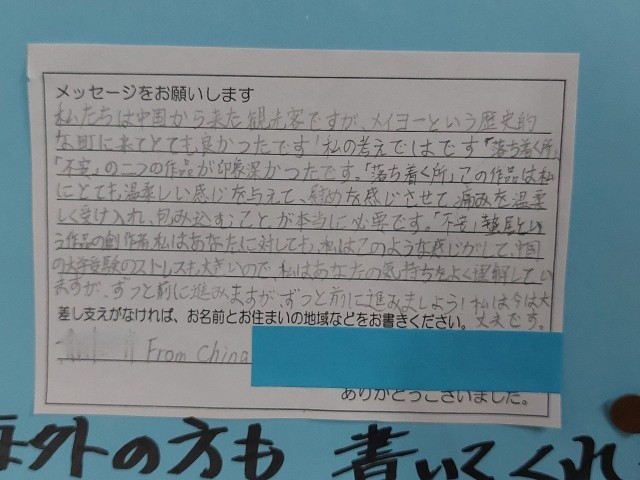 メッセージをお願いします
私たちは中国から来た観光客ですが、メイヨーという歴史的
な町に来てとても良かったです！私の考えではです「落ち着く所」
「不安」の二つの作品が印象深かったです。「落ち着く所」この作品は私
にとても温柔しい感じを与えて、慰めを感じさせて、痛みを温柔
しく受け入れ、包み込むことが本当に必要です。「不安」という
う作品の創作者、私はあなたに対しても、私はこのような感じがして、中国
の大学受験のストレスも大きいので、私はあなたの気持ちをよく理解してい
ますが、ずっと前に進みますが、ずっと前に進みましょう！私は今は大
丈夫です。
差し支えがなければ、お名前とお住まいの地域などをお書きください。
From China
ありがとうございました。
海外の方も 書いてくれ